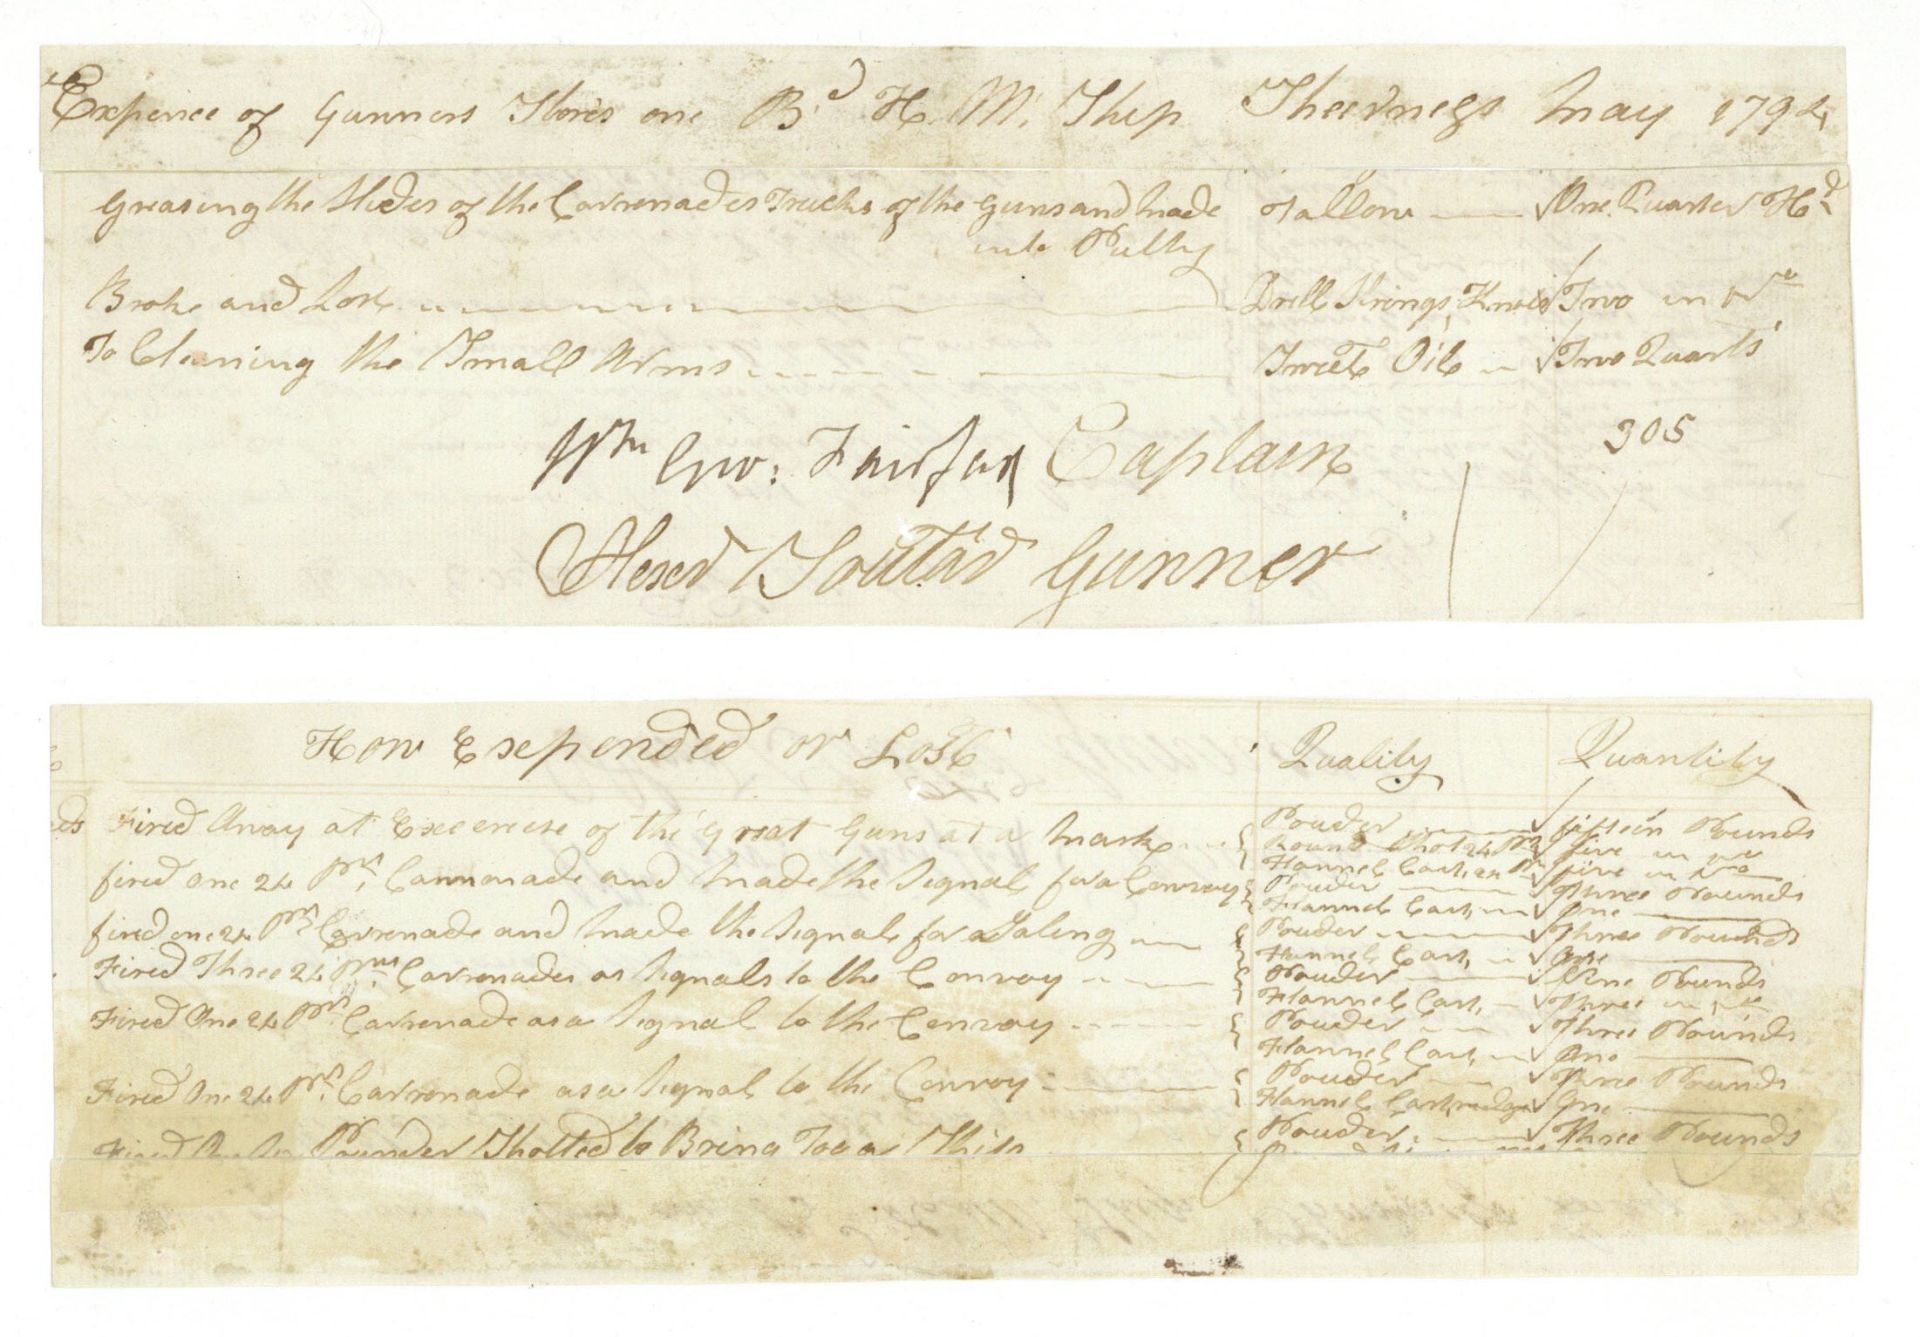 Expence of Gunners Stores one Bd H. M. Ship Sheerness May 1794
Greasing the Slides of the Carronades Trucks of the Guns and Made Tallow One Quarter Hd
into Putty
Broke and Lost Drill Strings, Knives Two in No
To Cleaning the Small Arms Sweet Oil Two Quarts
305
Wm Geo: Fairfax Captain
Alexr Soutar Gunner
How Expended or Lost Quality Quantity
Fired Away at Excercise of the Great Guns at a Mark Pouder fifteen Pounds
Round Shot 24 Pr five in No
Flannel Cart, 24 Pr five in No
fired One 24 Pr, Carronade and Made the Signal for a Convoy Pouder Three Pounds
Flannel Cart, One
fired one 24 Pr Carronade and Made the Signal for a Saling Pouder Three Pounds
Flannel Cart, One
Fired Three 24 Prs Carronades as Signals to the Convoy Pouder Nine Pounds
Flannel Cart, Three in No
Fired One 24 Pr, Carronade as a Signal to the Convoy Pouder Three Pounds
Flannel Cart, One
Fired One 24 Pr, Carronade as a Signal to the Convoy Pouder Three Pounds
Flannel Cartridge One
Fired Pounder Shotted to Bring Too a Ship Pouder Three Pounds